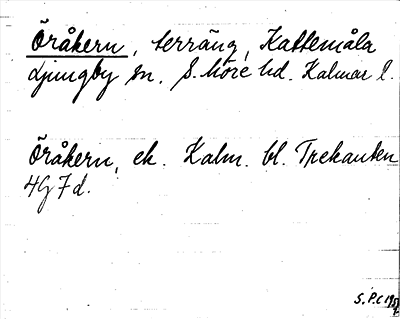 Öråkern, terräng, Kattemåla
Ljungby sn. S. Möre hd. Kalmar l.
Öråkern, ek. Kalm. bl. Trekanten
4G7d.
S.P.C 195